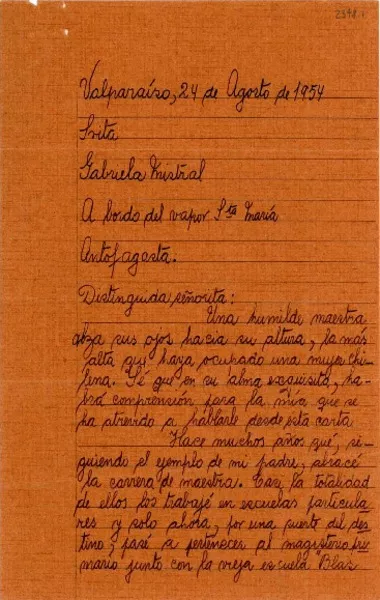 2398.1
Valparaíso, 24 de Agosto de 1954
Srita
Gabriela Mistral
A bordo del vapor Sta María
Antofagasta.
Distinguida señorita:
Una humilde maestra
alza sus ojos hacia su altura, la más
alta que haya ocupado una mujer chi
lena. Sé que en su alma exquisita, ha
brá comprensión para la mía que se
ha atrevido a hablarle desde esta carta
Hace muchos años que, si
guiendo el ejemplo de mi padre, abracé
la carrera de maestra. Casi la totalidad
de ellos los trabajé en escuelas particula
res y solo ahora, por una suerte del des
tino, pasé a pertenecer al magisterio pri
mario junto con la vieja escuela "Blas